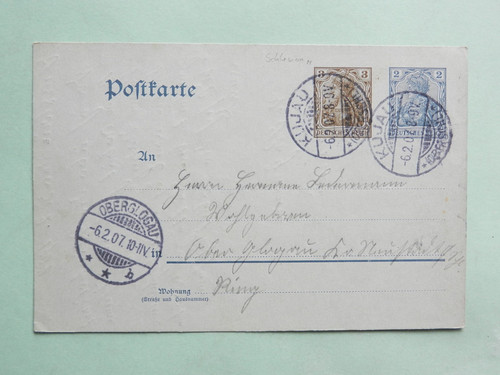 Schlesien
Postkarte
3 3
2 2
KUJAU
-6.2.07.8-9V.
(OBERSCHL.)
KUJAU
-6.2.07.8-9V.
An
Herrn Hermann
Wohlgeboren
OBERGLOGAU
-6.2.07.10-11V.
* * b
in Ober Glogau Kr. Neustadt O/S
Wohnung
Ring
(Straße und Hausnummer)